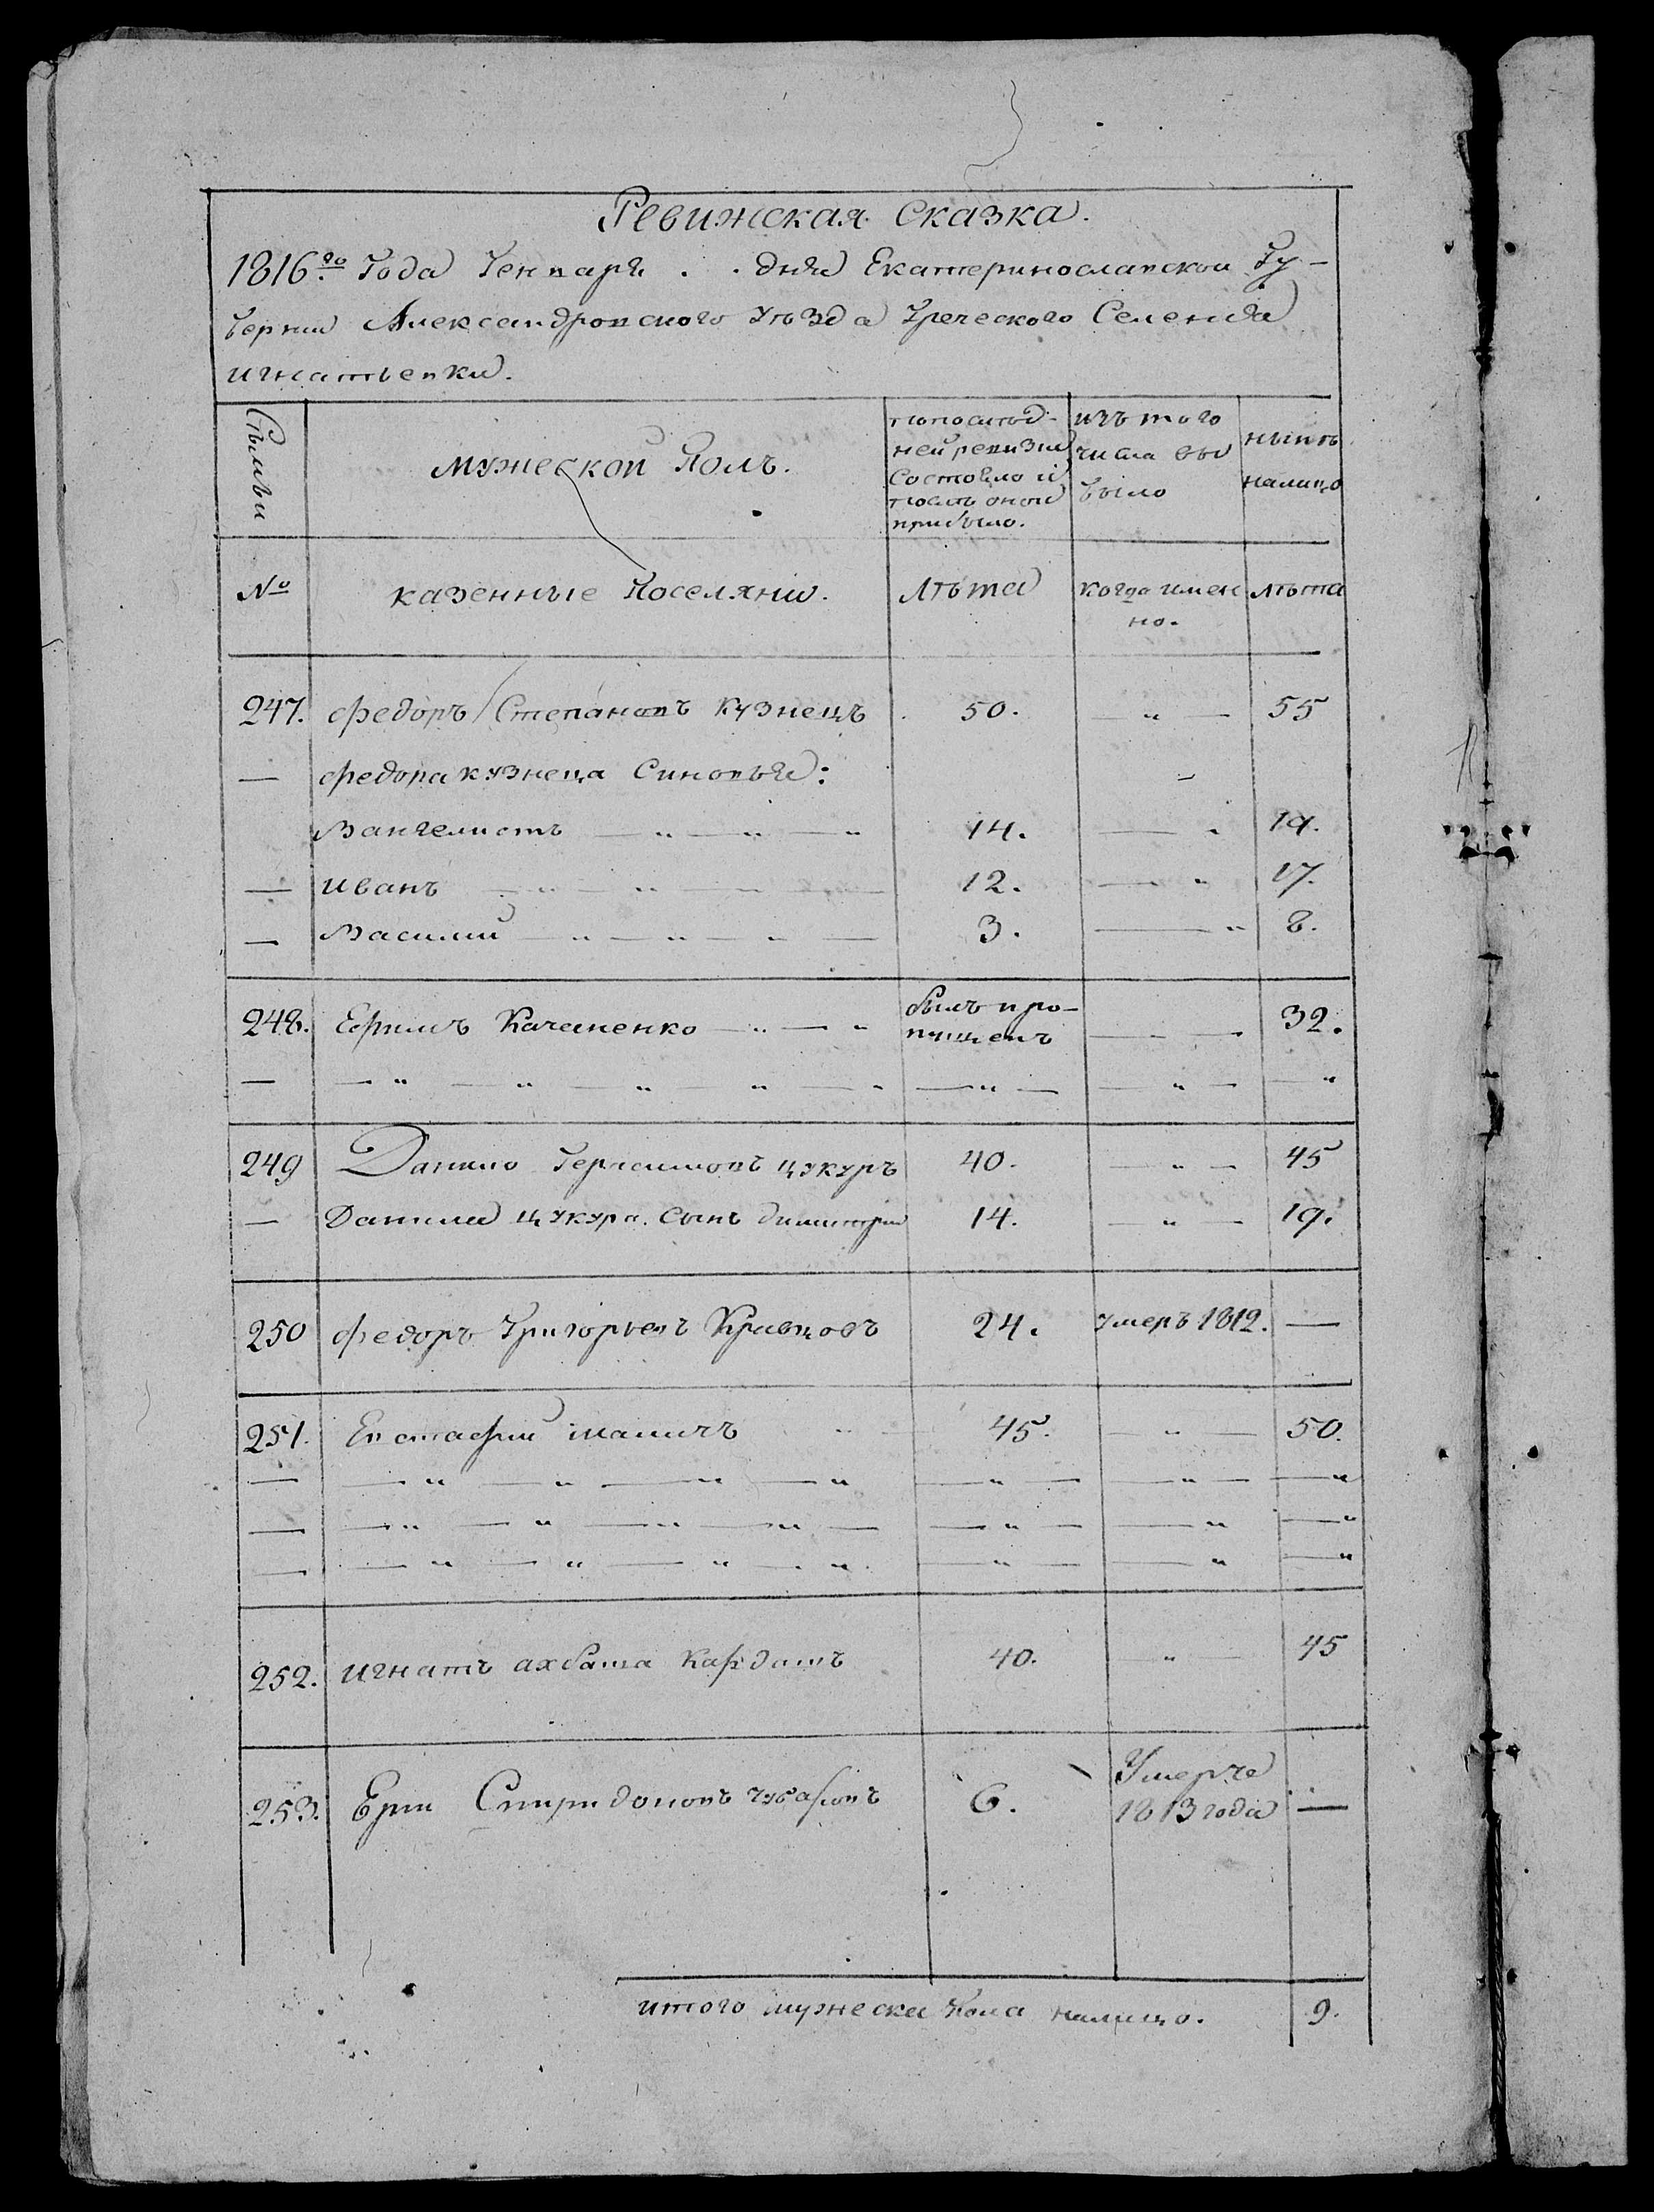 Ревижская Сказка.
1816го Года Генваря . . дня Екатеринославской Гу-
берни Александровского уѣзда Греческого Селения
игнатьевки.
Сѣмьи
мужеской Полъ.
попослѣд-
ней ревизии
состояло и
послѣ оной
прибыло.
изъ того
числа вы
было
нынѣ
налицо
№
казенные Поселяни.
Лѣта
когда имен
но.
лѣта
247. федоръ Степановъ Кузнецъ 50. " — 55
— федора кузнеца Синовья:
Вангелистъ — " — " " 14. — " 19.
— иванъ — " — " — " — 12. — " 17.
— Василий — " — " — " — 3. — " 8.
248. Ефимъ Качаненко — " — " былъ про-
пущенъ — — 32.
— — " — " — " — " — " — " — — " — — "
249 Данило Герасимовъ цукуръ 40. — " — 45
— Данила цукура. Сынъ димитри 14. — " — 19.
250 федоръ Григорьевъ Кривцовъ 24. умеръ 1812. —
251. Евстафий шаличъ " 45. — " — 50.
— — " — " — " — " — " — — " — — "
— — " — " — " — " — — " — — " — "
— — " — " — " — " — " — — " — "
252. игнатъ ахбаша 40. " — 45
253. Спиридоновъ 6. Умерче
1813 года —
итого мужеска Пола налицо. 9.